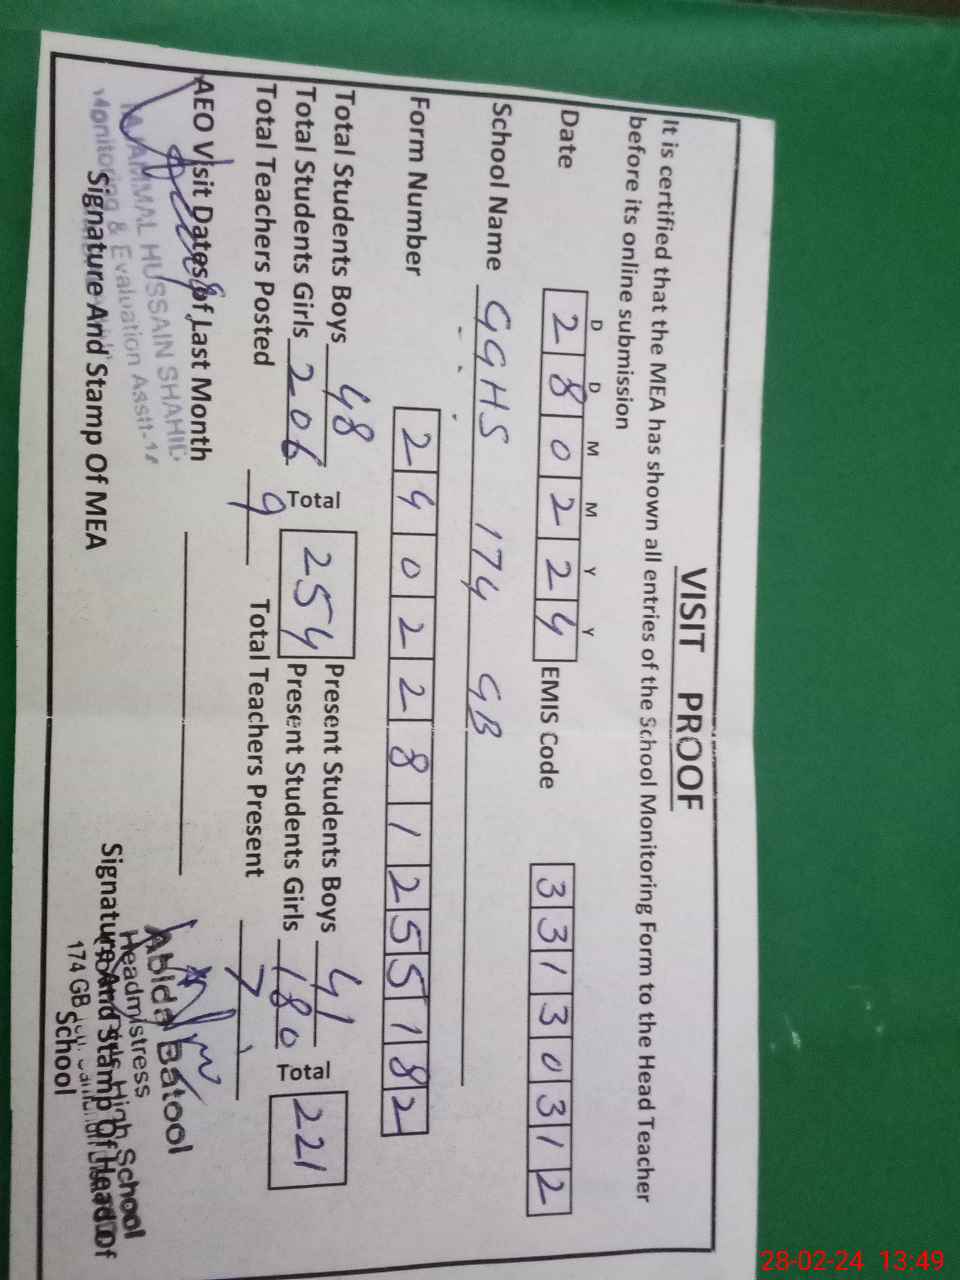 VISIT PROOF
It is certified that the MEA has shown all entries of the School Monitoring Form to the Head Teacher
before its online submission
D D M M Y Y
Date 2 8 0 2 2 4 EMIS Code 3 3 1 3 0 3 1 2
School Name GGHS 174 GB
Form Number 2 4 0 2 2 8 1 2 5 5 1 8 2
Total Students Boys 48 Present Students Boys 41
Total Students Girls 206 Total 254 Present Students Girls 180 Total 221
Total Teachers Posted 9 Total Teachers Present 7
AEO Visit Dates of Last Month
HUSSAIN SHAHID
Monitoring & Evaluation Asstt-
Signature And Stamp Of MEA
Abida Batool
Headmistress
High School
174 GB
Signature And Stamp Of Head Of
School
28-02-24 13:49